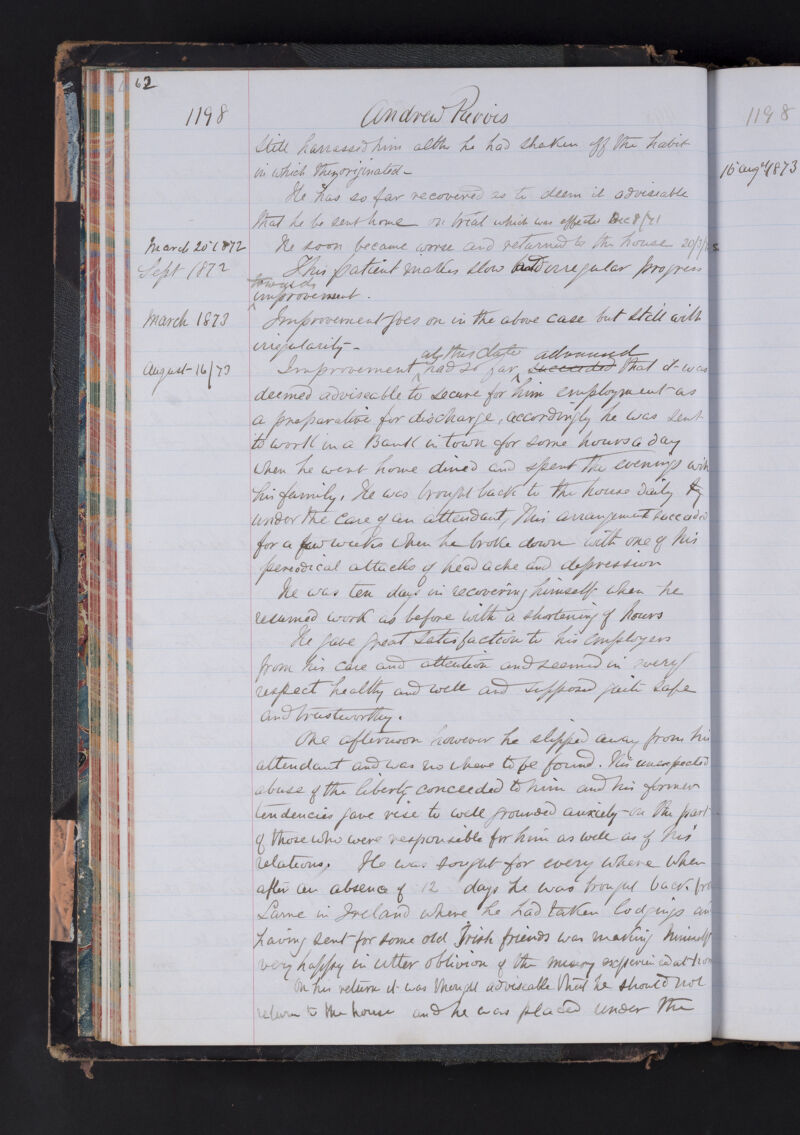 62
1198 Andrew 1198
still harrassed him altho he had shaken off the habit
in which they originated - 16 Augt 1873
He has so far recovered as to deem it adviseable
that he be sent home on trial which was effected Dec 8/71
March 20th 1872 He soon became worse and returned to the house 20/3/
Sept 1872 This patient makes slow and irregular progress
towards
improvement.
March 1873 Improvement goes on in the above case but still with
irregularity -
at this date advanced
August 16/73 Improvement had so far succeeded that it was
deemed adviseable to secure for him employment as
a preparative for discharge, accordingly he was sent
to work in a Bank in town for some hours a day
when he went home dined and spent the evenings with
his family. He was brought back to the house daily
under the care of an attendant, This arrangement succeeded
for a few weeks when he broke down with one of his
periodical attacks of headache and depression
He was ten days in recovering himself when he
resumed work as before with a shortening of hours
He gave great satisfaction to his employers
from his care and attention and seemed in every
respect healthy and well and supposed quite safe
and trustworthy.
One afternoon however he slipped away from his
attendant and was no where to be found. This unexpected
abuse of the liberty conceeded to him and his former
tendencies gave rise to well grounded anxiety on the part
of those who were responsible for him as well as of his
relations. He was sought for every where when
after an absence of 12 days he was brought back fro
Larne in Ireland where he had taken lodgings an
having sent for some old Irish friends was making himself
very happy in utter oblivion of the misery experienced at
On his return it was thought adviseable that he should not
return to the house and he was placed under the